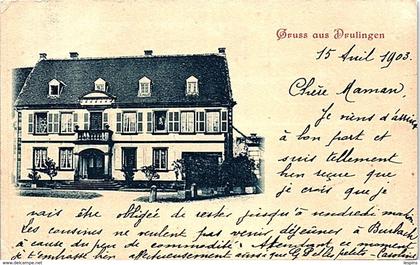 Gruss aus Drulingen
15 Avril 1903.
Chère Maman,
Je viens d'arriver
à bon port et
suis tellement
bien reçue que
je crois que je
vais être obligée de rester jusqu'à vendredi matin
Les cousines ne veulent pas venir déjeuner à
à cause du peu de commodités. Attendant ce moment
je t'embrasse bien affectueusement ainsi que G. P. et les petits.